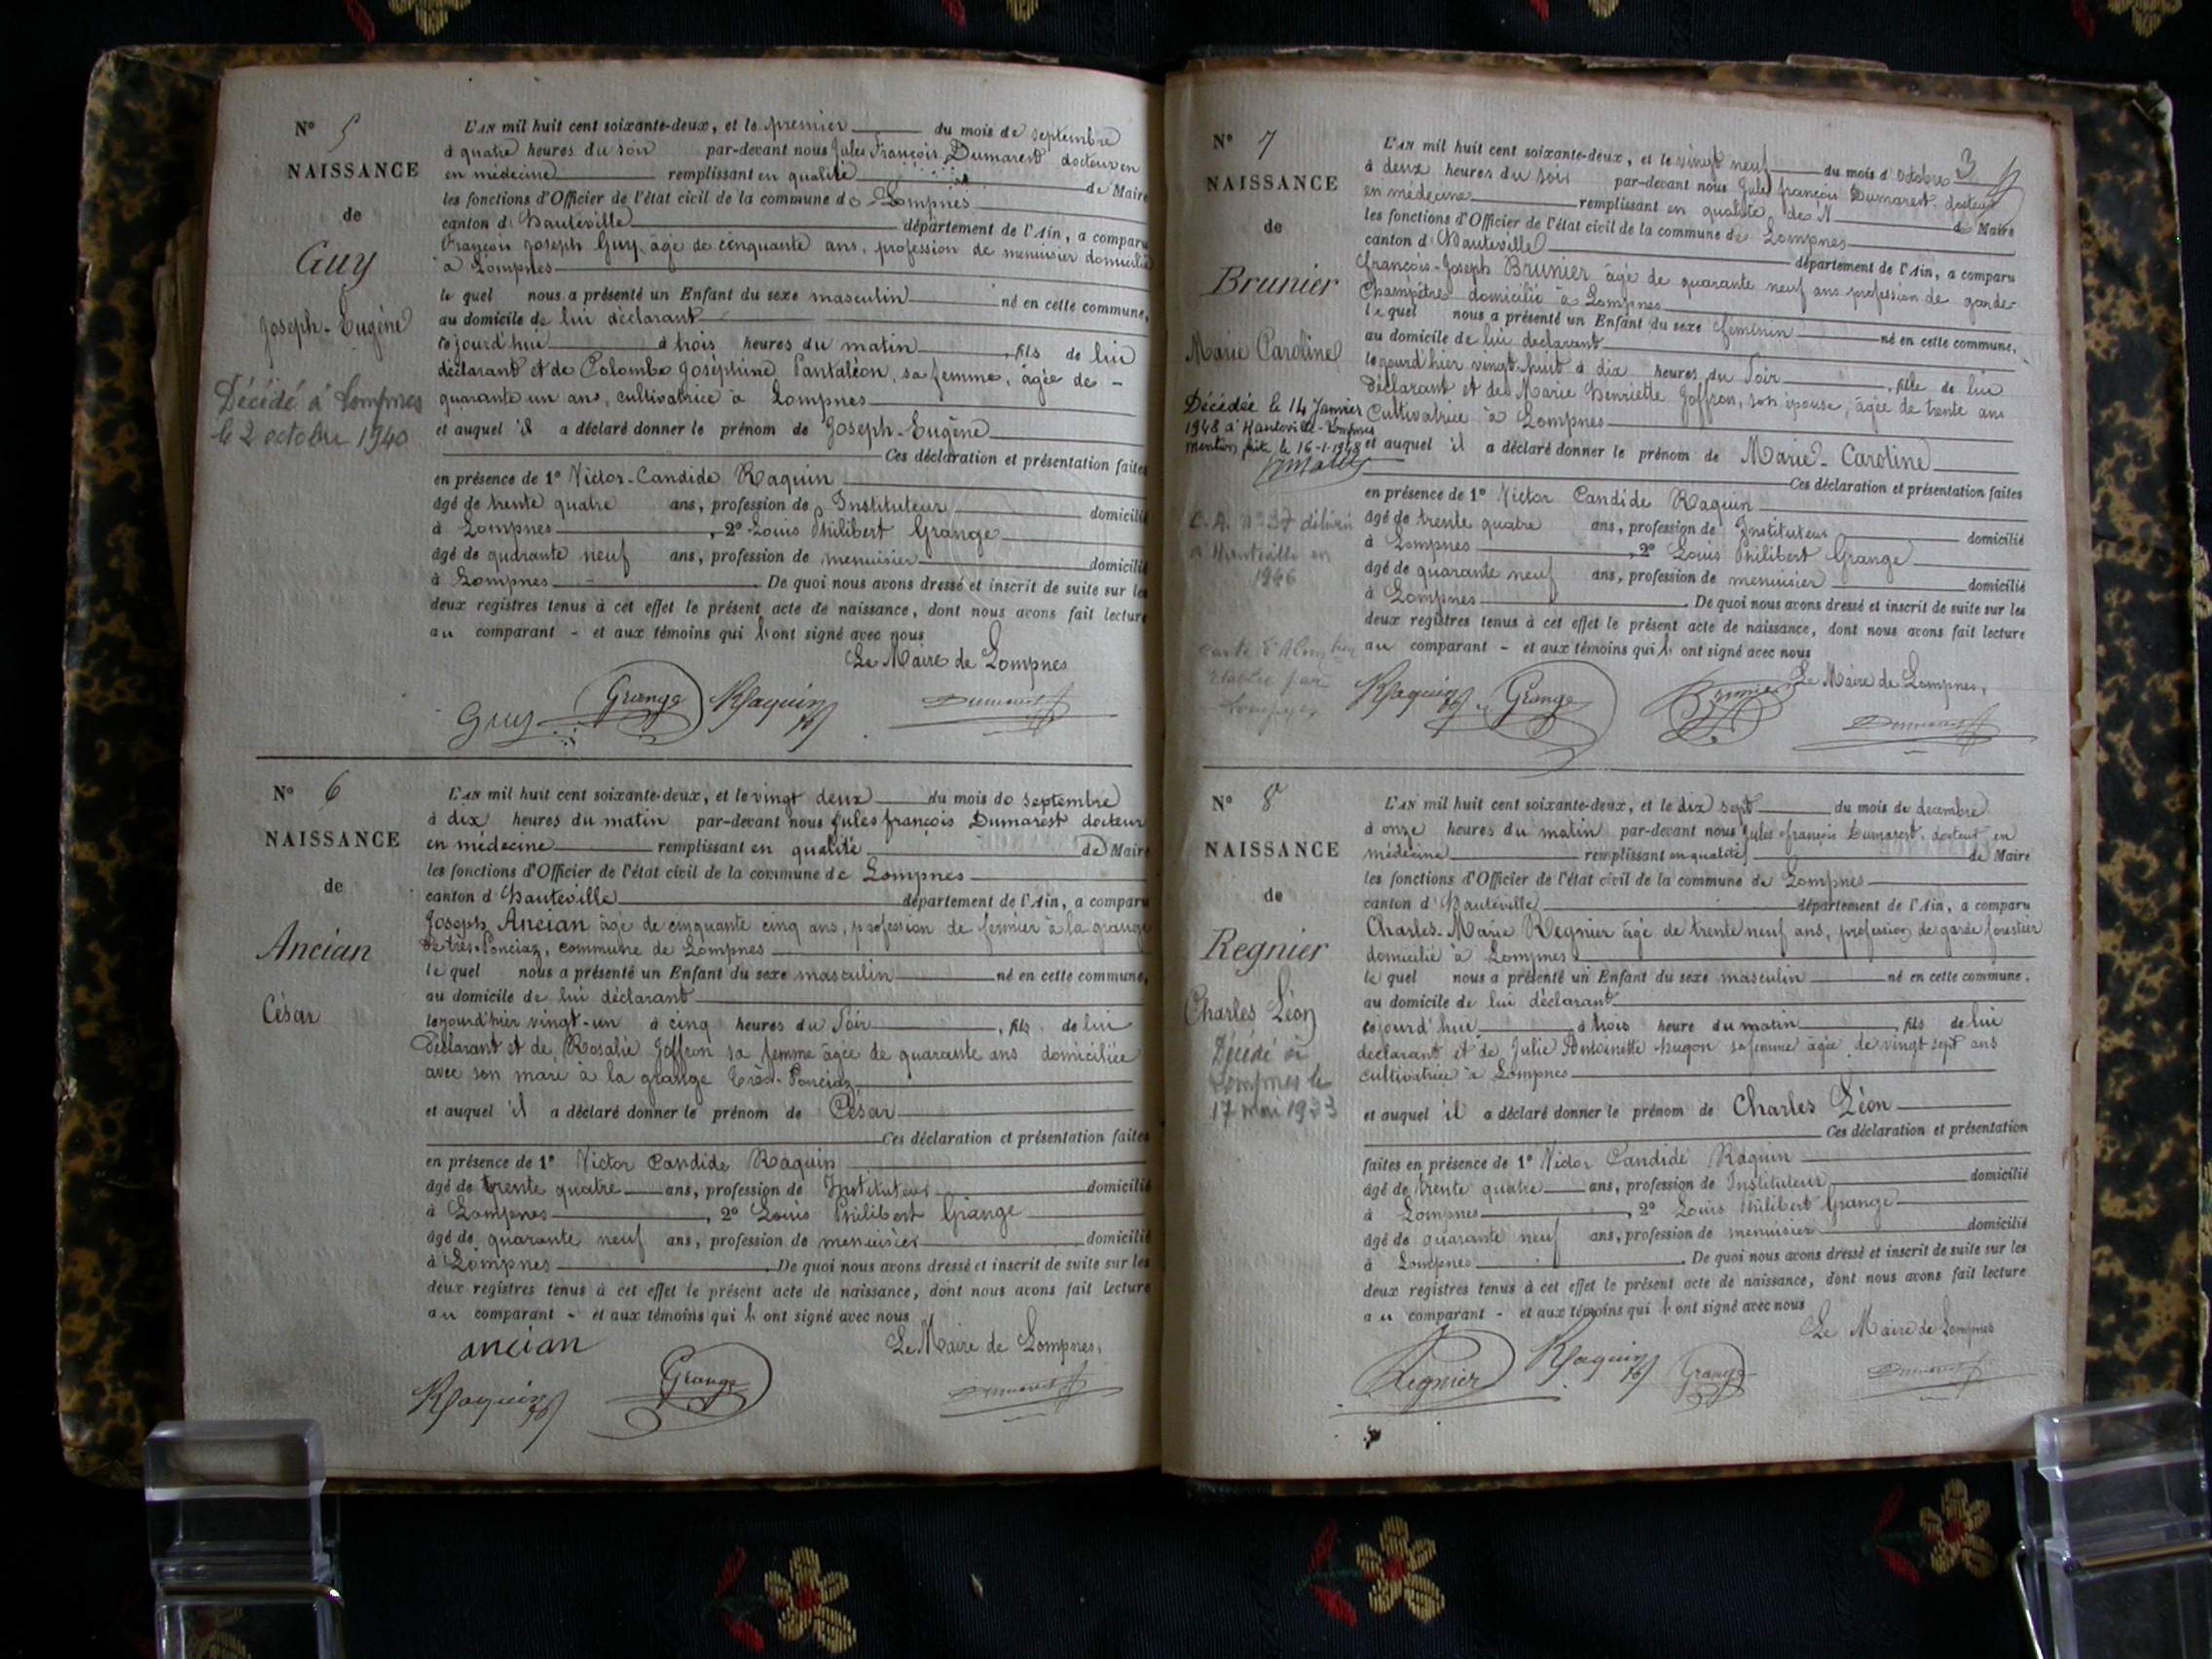 N° 5
NAISSANCE
de
Guy
Joseph-Eugène
Décédé à Lompnes
le 2 octobre 1940
L'AN mil huit cent soixante-deux, et le premier du mois de septembre
à quatre heures du soir par-devant nous Jules François Dumarest docteur en
en médecine remplissant en qualité de Maire
les fonctions d'Officier de l'état civil de la commune de Lompnes
canton d'Hauteville département de l'Ain, a comparu
François Joseph Guy, âgé de cinquante ans, profession de menuisier domicilié
à Lompnes
le quel nous a présenté un Enfant du sexe masculin né en cette commune,
au domicile de lui déclarant
cejourd'hui à trois heures du matin, fils de lui
déclarant et de Colombe Joséphine Pantaléon, sa femme, âgée de -
quarante un ans, cultivatrice à Lompnes
et auquel il a déclaré donner le prénom de Joseph-Eugène
Ces déclaration et présentation faites
en présence de 1° Victor-Candide Raquin
âgé de trente quatre ans, profession de Instituteur domicilié
à Lompnes, 2° Louis Philibert Grange
âgé de quarante neuf ans, profession de menuisier domicilié
à Lompnes De quoi nous avons dressé et inscrit de suite sur les
deux registres tenus à cet effet le présent acte de naissance, dont nous avons fait lecture
au comparant - et aux témoins qui l'ont signé avec nous
Le Maire de Lompnes
Guy Grange Raquin Dumarest
N° 6
NAISSANCE
de
Ancian
César
L'AN mil huit cent soixante-deux, et le vingt deux du mois de septembre
à dix heures du matin par-devant nous Jules françois Dumarest docteur
en médecine remplissant en qualité de Maire
les fonctions d'Officier de l'état civil de la commune de Lompnes
canton d'Hauteville département de l'Ain, a comparu
Joseph Ancian âgé de cinquante cinq ans, profession de fermier à la grange
de très-Ponciaz, commune de Lompnes
le quel nous a présenté un Enfant du sexe masculin né en cette commune,
au domicile de lui déclarant
lejourd'hier vingt-un à cinq heures du Soir, fils de lui
Déclarant et de Rosalie Joffron sa femme âgée de quarante ans domiciliée
avec son mari à la grange très-Ponciaz
et auquel il a déclaré donner le prénom de César
Ces déclaration et présentation faites
en présence de 1° Victor Candide Raquin
âgé de trente quatre ans, profession de Instituteur domicilié
à Lompnes, 2° Louis Philibert Grange
âgé de quarante neuf ans, profession de menuisier domicilié
à Lompnes. De quoi nous avons dressé et inscrit de suite sur les
deux registres tenus à cet effet le présent acte de naissance, dont nous avons fait lecture
au comparant - et aux témoins qui l'ont signé avec nous
ancian Le Maire de Lompnes,
Raquin Grange Dumarest
3
N° 7
NAISSANCE
de
Brunier
Marie Caroline
Décédée le 14 Janvier
1948 à Hauteville-Lompnes
mention faite le 16-1-1948
C. A. n° 37 délivrée
à Hauteville en
1946
établie par
Lompnes
L'AN mil huit cent soixante-deux, et le vingt neuf du mois d'octobre
à deux heures du soir par-devant nous Jules françois Dumarest, docteur
en médecine remplissant en qualité de Maire
les fonctions d'Officier de l'état civil de la commune de Lompnes
canton d'Hauteville département de l'Ain, a comparu
François-Joseph Brunier âgé de quarante neuf ans profession de garde-
Champêtre domicilié à Lompnes
le quel nous a présenté un Enfant du sexe féminin né en cette commune,
au domicile de lui déclarant
lejourd'hier vingt-huit à dix heures du Soir, fille de lui
Déclarant et de Marie Henriette Joffron, son épouse, âgée de trente ans
Cultivatrice à Lompnes
et auquel il a déclaré donner le prénom de Marie-Caroline
Ces déclaration et présentation faites
en présence de 1° Victor Candide Raquin
âgé de trente quatre ans, profession de Instituteur domicilié
à Lompnes, 2° Louis Philibert Grange
âgé de quarante neuf ans, profession de menuisier domicilié
à Lompnes. De quoi nous avons dressé et inscrit de suite sur les
deux registres tenus à cet effet le présent acte de naissance, dont nous avons fait lecture
au comparant - et aux témoins qui l'ont signé avec nous
Le Maire de Lompnes,
Raquin Grange Brunier Dumarest
N° 8
NAISSANCE
de
Regnier
Charles Léon
Décédé à
Lompnes le
17 mai 1933
L'AN mil huit cent soixante-deux, et le dix sept du mois de décembre
à onze heures du matin par-devant nous Jules françois Dumarest, docteur en
médecine remplissant en qualité de Maire
les fonctions d'Officier de l'état civil de la commune de Lompnes
canton d'Hauteville département de l'Ain, a comparu
Charles-Marie Regnier âgé de trente neuf ans, profession de garde forestier
domicilié à Lompnes
le quel nous a présenté un Enfant du sexe masculin né en cette commune,
au domicile de lui déclarant
cejourd'hui à trois heure du matin, fils de lui
déclarant et de Julie Antoinette hugon sa femme âgée de vingt sept ans
cultivatrice à Lompnes
et auquel il a déclaré donner le prénom de Charles Léon
Ces déclaration et présentation
faites en présence de 1° Victor Candide Raquin
âgé de trente quatre ans, profession de Instituteur domicilié
à Lompnes, 2° Louis Philibert Grange
âgé de quarante neuf ans, profession de menuisier domicilié
à Lompnes. De quoi nous avons dressé et inscrit de suite sur les
deux registres tenus à cet effet le présent acte de naissance, dont nous avons fait lecture
au comparant - et aux témoins qui l'ont signé avec nous
Le Maire de Lompnes
Regnier Raquin Grange Dumarest